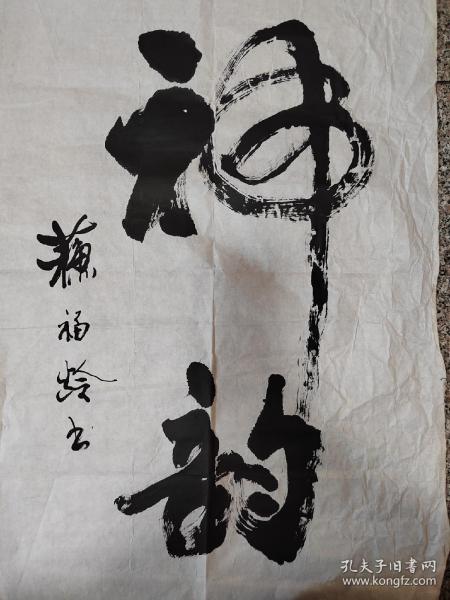 神韵
苏福龄书
孔夫子旧书网
www.kongfz.com